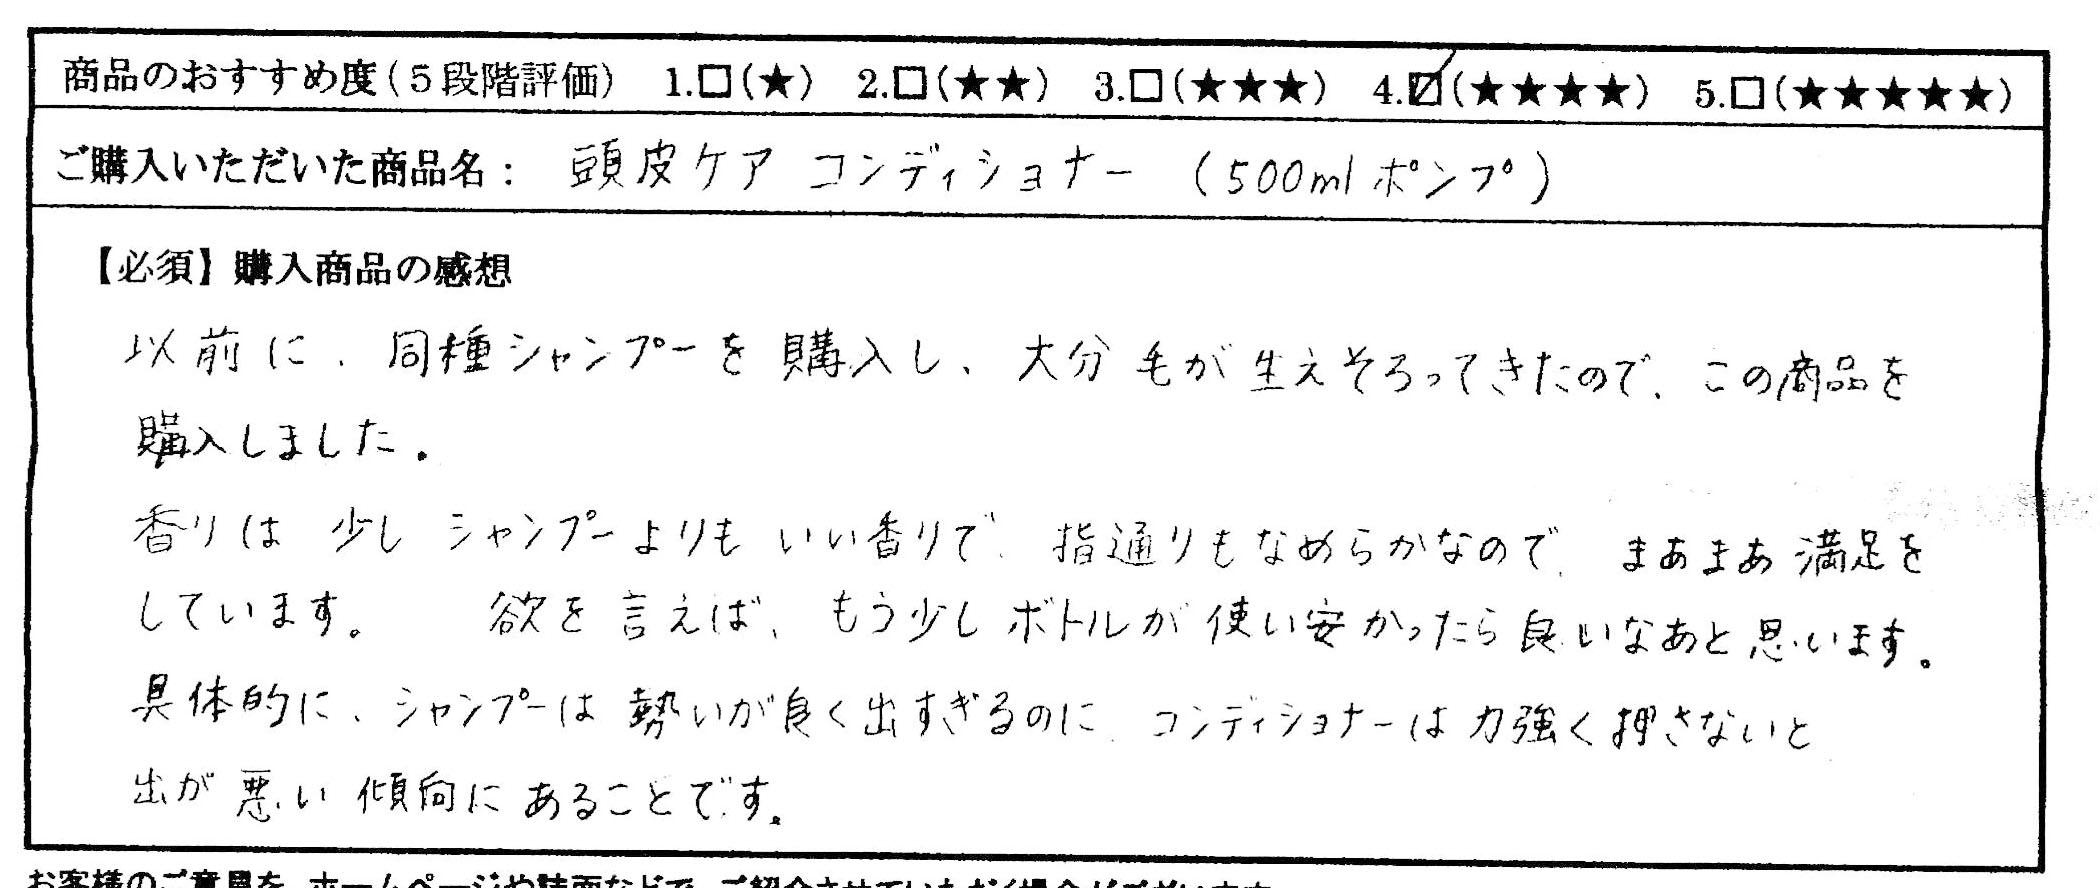 商品のおすすめ度(5段階評価) 1.□(★) 2.□(★★) 3.□(★★★) 4.☑(★★★★) 5.□(★★★★★)
ご購入いただいた商品名: 頭皮ケア コンディショナー (500mlポンプ)
【必須】購入商品の感想
以前に、同種シャンプーを購入し、大分毛が生えそろってきたので、この商品を
購入しました。
香りは少しシャンプーよりもいい香りで、指通りもなめらかなので、まあまあ満足を
しています。 欲を言えば、もう少しボトルが使い安かったら良いなあと思います。
具体的に、シャンプーは勢いが良く出すぎるのに、コンディショナーは力強く押さないと
出が悪い傾向にあることです。
お客様のご意見を、ホームページや誌面などで、ご紹介させていただく場合がございます